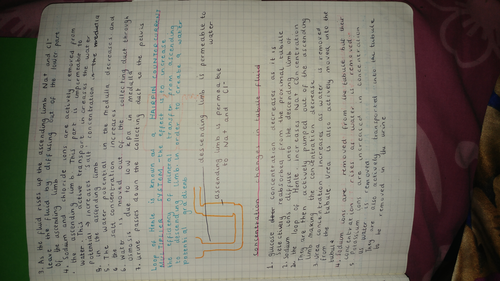 3. As the fluid rises up the ascending limb Na+ and Cl-
leave the fluid by diffusing out of the lower part
of the ascending limb
4. Sodium and chloride ions are actively removed from
the ascending limb. This part is impermeable to
water. This active transport increases the water
potential + increases salt concentration
in the ascending limb
5. The water potential in the medulla decreases and
the salt concentration increases
6. Water is moved out of the collecting duct through
osmosis due to low in medulla
7. Urine passes down the collecting duct to the pelvis
Loop of Henle is known as a Hairpin countercurrent
multiplier system. The effect is to increase
the efficiency of transfer of from ascending
to descending limb in order to create a water
potential gradient
descending limb is permeable to
water
ascending limb is permeable
to Na+ and Cl-
Concentration changes in tubule fluid
1. Glucose concentration decreases as it is
selectively reabsorbed from the proximal tubule
2. Sodium ions diffuse into the descending limb of
the loop of Henle increasing Na+ concentration
They are then actively pumped out of the ascending
limb making the concentration decrease
3. Urea concentration increases as water is removed
from the tubule. Urea is also actively moved into the
tubule
4. Sodium ions are removed from the tubule but their
concentration as water is removed
5. Potassium ions are increased in concentration
as water is removed
They are also actively transported into the tubule
to be removed in the urine